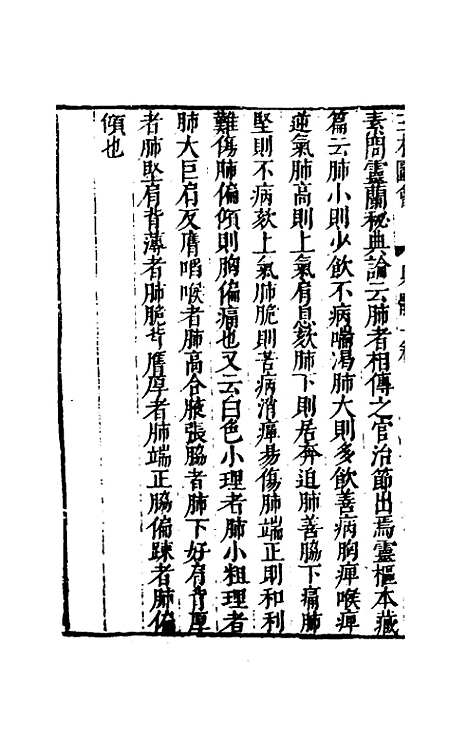 三才圖會
身體一卷
素問靈蘭秘典論云肺者相傳之官治節出焉靈樞本藏
篇云肺小則少飲不病喘渴肺大則多飲善病胸痺喉痺
逆氣肺高則上氣肩息欬肺下則居奔迫肺善脇下痛肺
堅則不病欬上氣肺脆則苦病消癉易傷肺端正則和利
難傷肺偏傾則胸偏痛也又云白色小理者肺小粗理者
肺大巨肩反膺喎喉者肺高合腋張脇者肺下好肩背厚
者肺堅肩背薄者肺脆背膺厚者肺端正脇偏踈者肺偏
傾也